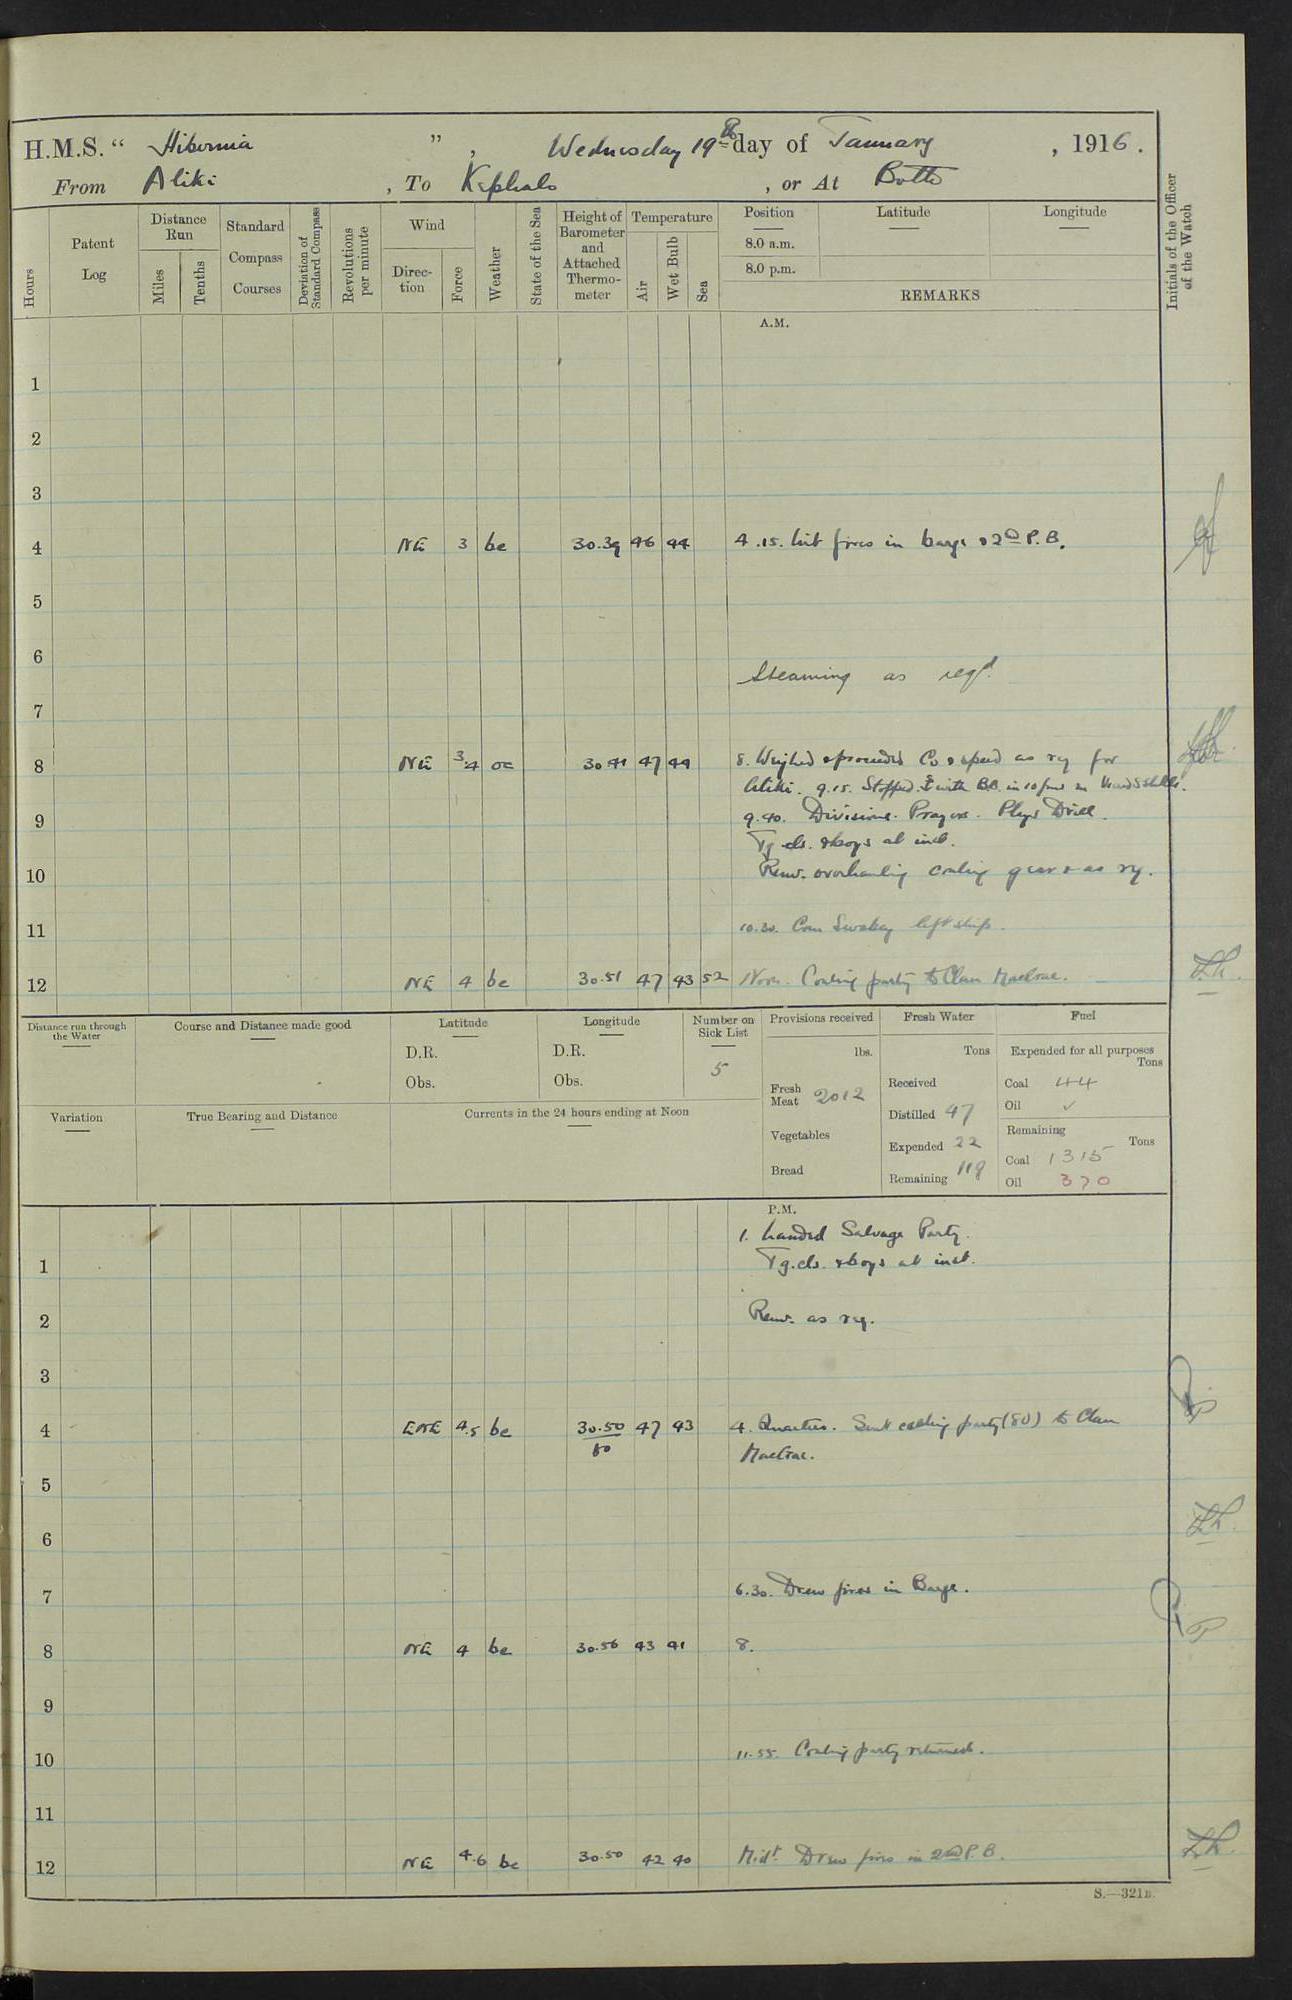 H.M.S. “ Hibernia ” , Wednesday 19th day of January , 1916 .
From Aliki , To Kephalo , or At Both
Hours
Patent Log
Distance Run
Miles
Tenths
Standard Compass Courses
Deviation of Standard Compass
Revolutions per minute
Wind
Direction
Force
Weather
State of the Sea
Height of Barometer and Attached Thermometer
Temperature
Air
Wet Bulb
Sea
Position
Latitude
Longitude
8.0 a.m.
8.0 p.m.
REMARKS
Initials of the Officer of the Watch
A.M.
1
2
3
4 NE 3 bc 30.39 46 44 4.15. Lit fires in barge & 2nd P.B.
5
6
Steaming as reqd.
7
8 NE 3.4 oc 30 41 47 44 8. Weighed & proceeded Co & speed as rq for
Aliki. 9.15. Stopped & with B.B. in 10 fms
9 9.40. Divisions. Prayers. Phys Drill.
Tg cls. & boys at inst.
10 Remr. overhauling coaling gear & as rq.
11 10.30. Com left ship.
12 NE 4 bc 30.51 47 43 52 Noon. Coaling party to Clan MacCrae.
Distance run through the Water
Course and Distance made good
Latitude
D.R.
Obs.
Longitude
D.R.
Obs.
Number on Sick List
5
Provisions received
lbs.
Fresh Meat 2012
Vegetables
Bread
Fresh Water
Tons
Received
Distilled 47
Expended 22
Remaining 118
Fuel
Expended for all purposes
Tons
Coal 44
Oil ✓
Remaining
Tons
Coal 1315
Oil 370
Variation
True Bearing and Distance
Currents in the 24 hours ending at Noon
P.M.
1. Landed Salvage Party.
1 Tg. cls. & boys at inst.
2 Remr. as rq.
3
4 ENE 4.5 bc 30.50 47 43 4. Quarters. Sent coaling party (80) to Clan
60 MacCrae.
5
6
7 6.30. Drew fires in Barge.
8 NE 4 bc 30.56 43 41 8.
9
10 11.55. Coaling party returned.
11
12 NE 4.6 bc 30.50 42 40 Midt. Drew fires in 2nd P.B.
S.—321B.